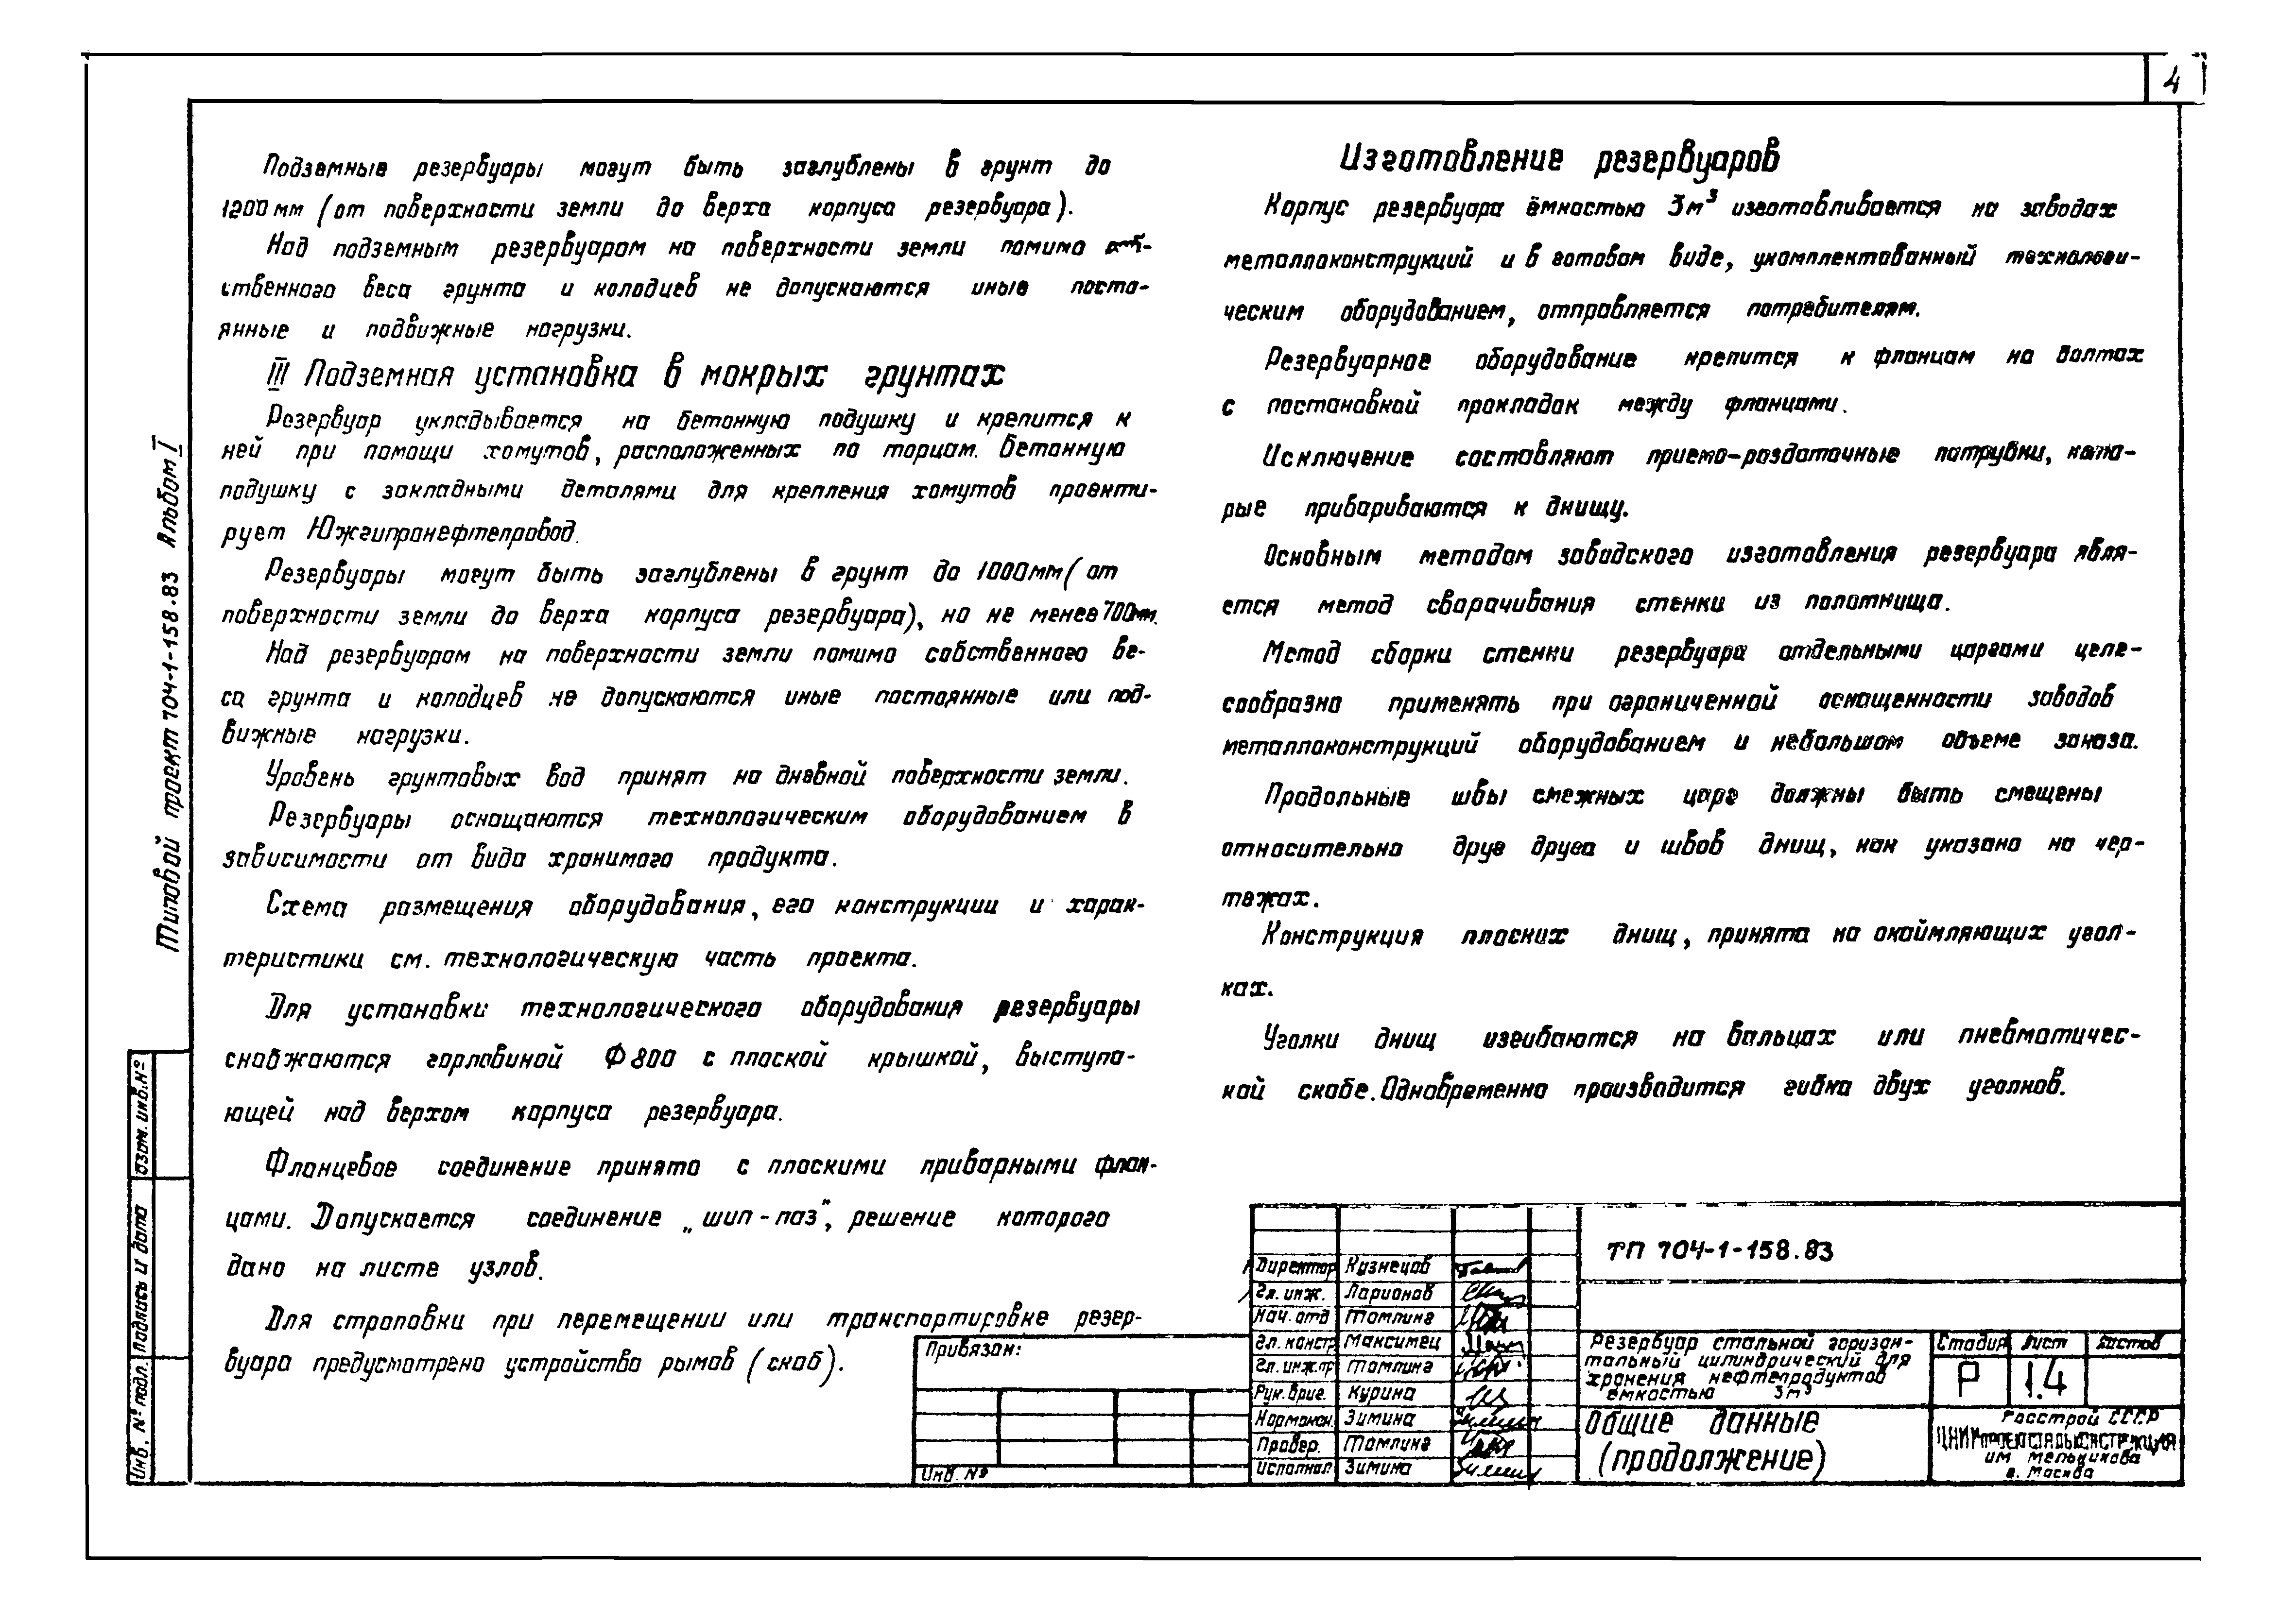 4
Подземные резервуары могут быть заглублены в грунт до
1200 мм (от поверхности земли до верха корпуса резервуара).
Над подземным резервуаром на поверхности земли помимо
ственного веса грунта и колодцев не допускаются иные посто-
янные и подвижные нагрузки.
III Подземная установка в мокрых грунтах
Резервуар укладывается на бетонную подушку и крепится к
ней при помощи хомутов, расположенных по торцам. Бетонную
подушку с закладными деталями для крепления хомутов проекти-
рует Южгипронефтепровод.
Резервуары могут быть заглублены в грунт до 1000мм (от
поверхности земли до верха корпуса резервуара), но не менее 700мм.
Над резервуаром на поверхности земли помимо собственного ве-
са грунта и колодцев не допускаются иные постоянные или под-
вижные нагрузки.
Уровень грунтовых вод принят на дневной поверхности земли.
Резервуары оснащаются технологическим оборудованием в
зависимости от вида хранимого продукта.
Схема размещения оборудования, его конструкции и харак-
теристики см. технологическую часть проекта.
Для установки технологического оборудования резервуары
снабжаются горловиной Ф800 с плоской крышкой, выступа-
ющей над верхом корпуса резервуара.
Фланцевое соединение принято с плоскими приварными флан-
цами. Допускается соединение „шип-паз", решение которого
дано на листе узлов.
Для строповки при перемещении или транспортировке резер-
вуара предусмотрено устройство рымов (скоб).
Изготовление резервуаров
Корпус резервуара ёмкостью 3м³ изготавливается на заводах
металлоконструкций и в готовом виде, укомплектованный технологи-
ческим оборудованием, отправляется потребителям.
Резервуарное оборудование крепится к фланцам на болтах
с постановкой прокладок между фланцами.
Исключение составляют приемо-раздаточные патрубки, кото-
рые привариваются к днищу.
Основным методом заводского изготовления резервуара явля-
ется метод сворачивания стенки из полотнища.
Метод сборки стенки резервуара отдельными царгами целе-
сообразно применять при ограниченной оснащенности заводов
металлоконструкций оборудованием и небольшом объеме заказа.
Продольные швы смежных царг должны быть смещены
относительно друг друга и швов днищ, как указано на чер-
тежах.
Конструкция плоских днищ, принята на окаймляющих угол-
ках.
Уголки днищ изгибаются на вальцах или пневматичес-
кой скобе. Одновременно производится гибка двух уголков.
Типовой проект 704-1-158.83 Альбом I
Взам. инв. №
Подпись и дата
Инв. № подл.
Привязан:
Инв. №
Директор Кузнецов
Гл. инж. Ларионов
Нач. отд Томлинг
Гл. констр Максимец
Гл. инж. пр Томлинг
Рук. бриг. Курина
Нормокон. Зимина
Провер. Томлинг
Исполнил Зимина
ТП 704-1-158.83
Резервуар стальной горизон-
тальный цилиндрический для
хранения нефтепродуктов
ёмкостью 3м³
Стадия Лист Листов
Р 1.4
Общие данные
(продолжение)
Госстрой СССР
ЦНИИПРОЕКТСТАЛЬКОНСТРУКЦИЯ
им Мельникова
г. Москва